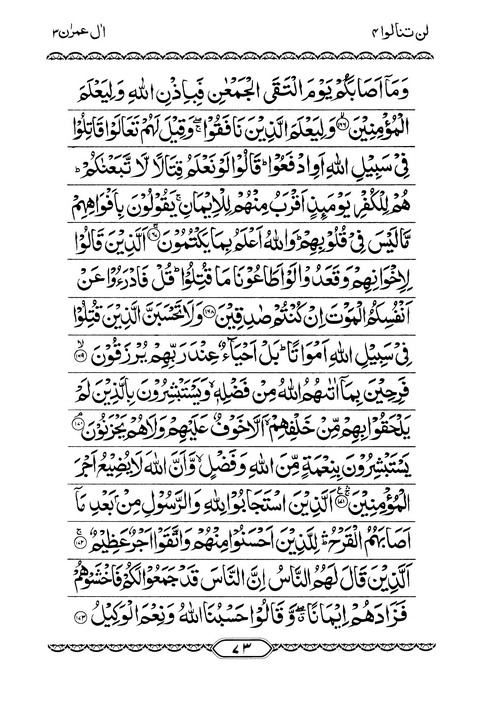 لن تنالوا ۴
اٰل عمرٰن ۳
وَمَآ اَصَابَكُمْ يَوْمَ الْتَقَى الْجَمْعٰنِ فَبِاِذْنِ اللّٰهِ وَلِيَعْلَمَ
الْمُؤْمِنِيْنَ ۙ﴿۱۶۶﴾ وَلِيَعْلَمَ الَّذِيْنَ نَافَقُوْا ۚۖ وَقِيْلَ لَهُمْ تَعَالَوْا قَاتِلُوْا
فِيْ سَبِيْلِ اللّٰهِ اَوِ ادْفَعُوْا ؕ قَالُوْا لَوْ نَعْلَمُ قِتَالًا لَّا تَّبَعْنٰكُمْ ؕ
هُمْ لِلْكُفْرِ يَوْمَىِٕذٍ اَقْرَبُ مِنْهُمْ لِلْاِيْمَانِ ۚ يَقُوْلُوْنَ بِاَفْوَاهِهِمْ
مَّا لَيْسَ فِيْ قُلُوْبِهِمْ ؕ وَاللّٰهُ اَعْلَمُ بِمَا يَكْتُمُوْنَ ۚ﴿۱۶۷﴾ اَلَّذِيْنَ قَالُوْا
لِاِخْوَانِهِمْ وَقَعَدُوْا لَوْ اَطَاعُوْنَا مَا قُتِلُوْا ؕ قُلْ فَادْرَءُوْا عَنْ
اَنْفُسِكُمُ الْمَوْتَ اِنْ كُنْتُمْ صٰدِقِيْنَ ﴿۱۶۸﴾ وَلَا تَحْسَبَنَّ الَّذِيْنَ قُتِلُوْا
فِيْ سَبِيْلِ اللّٰهِ اَمْوَاتًا ؕ بَلْ اَحْيَآءٌ عِنْدَ رَبِّهِمْ يُرْزَقُوْنَ ۙ﴿۱۶۹﴾
فَرِحِيْنَ بِمَآ اٰتٰىهُمُ اللّٰهُ مِنْ فَضْلِهٖ ۙ وَيَسْتَبْشِرُوْنَ بِالَّذِيْنَ لَمْ
يَلْحَقُوْا بِهِمْ مِّنْ خَلْفِهِمْ ۙ اَلَّا خَوْفٌ عَلَيْهِمْ وَلَا هُمْ يَحْزَنُوْنَ ۘ﴿۱۷۰﴾
يَسْتَبْشِرُوْنَ بِنِعْمَةٍ مِّنَ اللّٰهِ وَفَضْلٍ ۙ وَّاَنَّ اللّٰهَ لَا يُضِيْعُ اَجْرَ
الْمُؤْمِنِيْنَ ۚ﴿۱۷۱﴾ اَلَّذِيْنَ اسْتَجَابُوْا لِلّٰهِ وَالرَّسُوْلِ مِنْۢ بَعْدِ مَآ
اَصَابَهُمُ الْقَرْحُ ۛؕ لِلَّذِيْنَ اَحْسَنُوْا مِنْهُمْ وَاتَّقَوْا اَجْرٌ عَظِيْمٌ ۚ﴿۱۷۲﴾
اَلَّذِيْنَ قَالَ لَهُمُ النَّاسُ اِنَّ النَّاسَ قَدْ جَمَعُوْا لَكُمْ فَاخْشَوْهُمْ
فَزَادَهُمْ اِيْمَانًا ۖۗ وَّقَالُوْا حَسْبُنَا اللّٰهُ وَنِعْمَ الْوَكِيْلُ ﴿۱۷۳﴾
۷۳